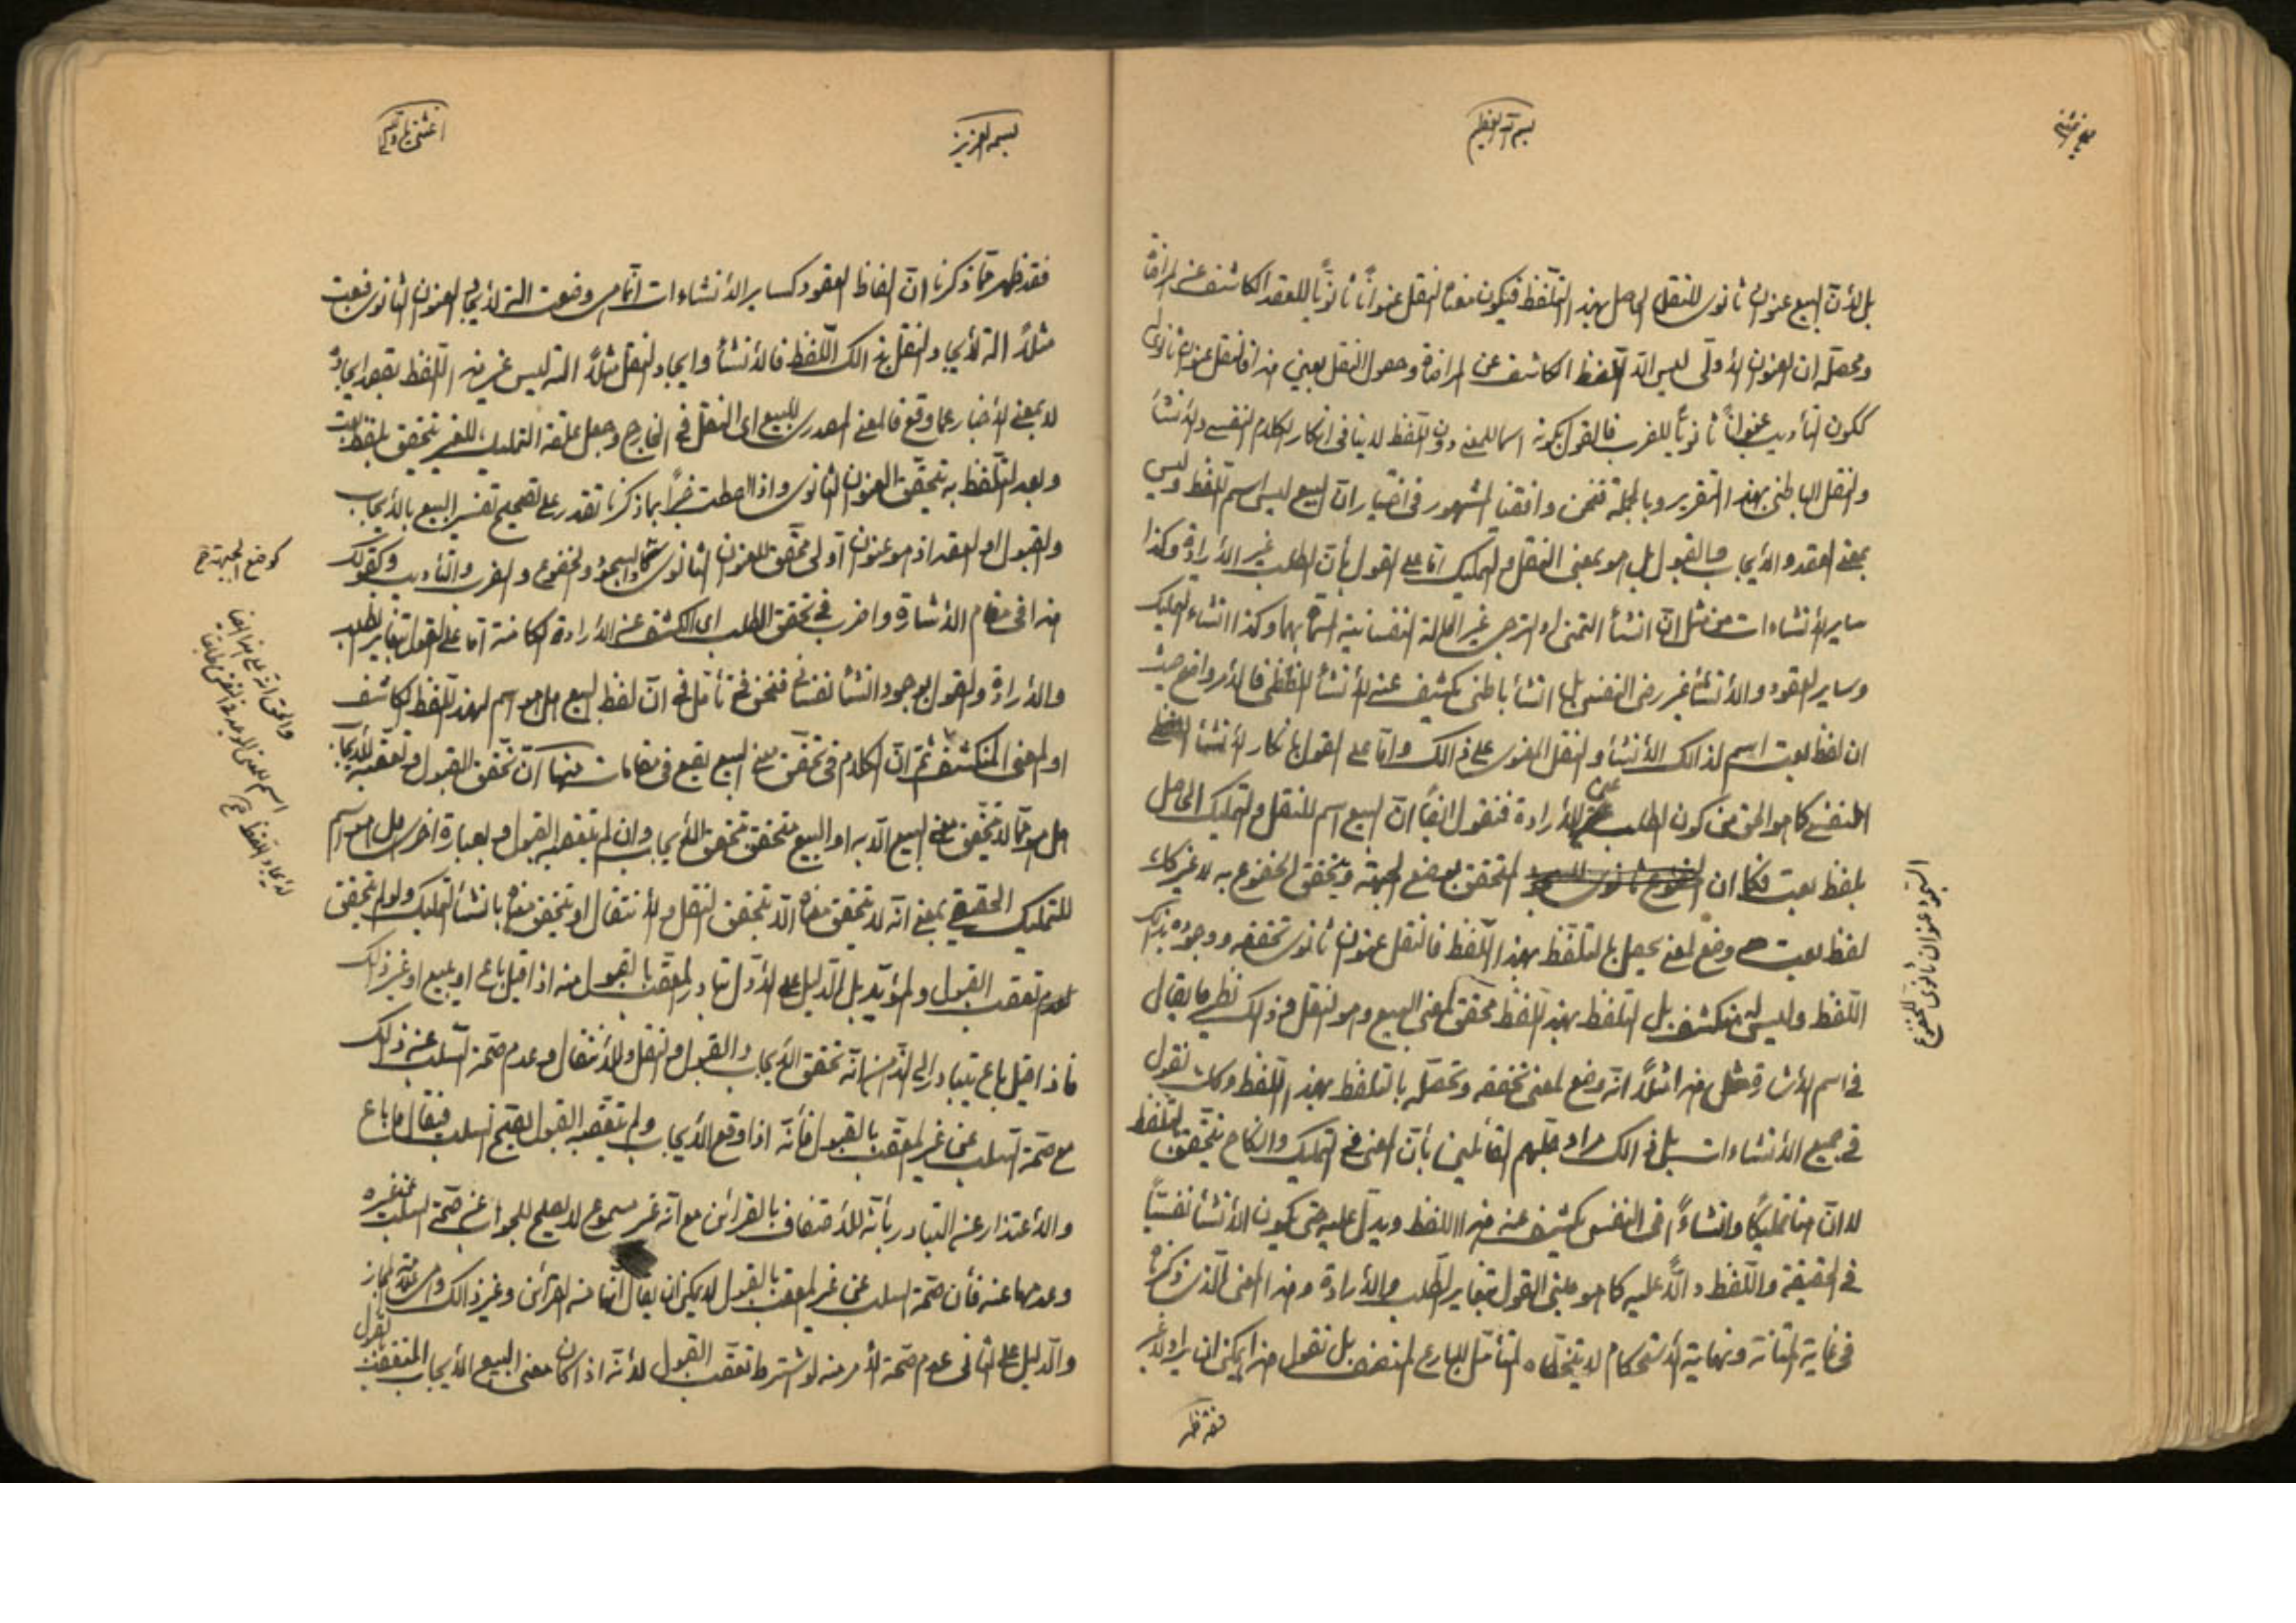 بسم الله العظيم
بل لأن البيع عنوان ثانوى للنقل الحاصل بهذا التلفظ فيكون معناه النقل عنوانًا ثانويًا للعقد الكاشف عن المراضاة
ومحصله ان العنوان الأولى ليس الا التلفظ الكاشف عن المراضاة وحصول النقل بعين هذا فالنقل عنوان ثانوى
ككون التأديب عنوانًا ثانويًا للضرب فالقول بكونه اسما للمعنى دون اللفظ لا ينافى انكار الكلام النفسى والأنشأ
والنقل الباطنى بهذا التقرير وبالجملة فنحن وافقنا المشهور فى اختيار ان البيع ليس اسم اللفظ وليس
بمعنى العقد والأيجاب والقبول بل هو بمعنى النقل والتمليك اما على القول بأن الطلب غير الأرادة وكذا
ساير الأنشاءات من مثل ان انشأ التمنى او الترجى غير الحالة النفسانية المسماة بهما وكذا انشاء التمليك
وساير العقود والأنشأ غير رضى النفس بل انشأ باطنى يكشف عنه الأنشأ اللفظى فالأمر واضح حيث
ان لفظ بعت اسم لذالك الأنشأ والنقل المعنوى على ذالك واما على القول بانكار الأنشأ
النفسى كما هو الحق من كون الطلب عين الأرادة فنقول ايضًا ان البيع اسم للنقل والتمليك الحاصل
بلفظ بعت فكما ان المتحقق بوضع الجبهة ويتحقق الخضوع به لا غير كك
السجود عنوان ثانوى للخضوع
لفظ بعت وضع لمعنى يحصل بالتلفظ بهذا اللفظ فالنقل عنوان ثانوى تحققه ووجوده بذالك
اللفظ وليس له منكشف بل التلفظ بهذا اللفظ محقق لمعنى البيع وهو النقل وذالك نظير ما يقال
فى اسم الأشارة مثل هذا مثلاً انه وضع لمعنى تحققه وتحصله بالتلفظ بهذا اللفظ وكك نقول
فى جميع الأنشاءات بل ذالك مراد جلهم القائلين بأن المعنى فى التمليك والنكاح يتحقق بالتلفظ
لا ان هنا تمليكًا وانشاءً فى النفس يكشف عنه هذا اللفظ ويدل عليه حتى يكون الأنشأ نفسيًا
فى الحقيقة واللفظ دالاً عليه كما هو مبنى القول بتغاير الطلب والأرادة وهذا المعنى الذى ذكرناه
فى غاية المتانة ونهاية الأستحكام لا يتخطاه المتأمل البارع المنصف بل نقول هذا يمكن ان يراد
بسمه العزيز
فقد ظهر مما ذكرنا ان الفاظ العقود كساير الأنشاءات انما هى وضعت الة لأيجاد العنوان الثانوى فبعت
مثلاً الة لأيجاد النقل بذالك اللفظ فالأنشأ وايجاد النقل مثلاً الة ليس غير هذا التلفظ بقصد ايجاده
لا بمعنى الأخبار عما وقع فالمعنى المصدرى للبيع اى النقل فى الخارج وجعل علقة التمليك للغير يتحقق بلفظ بعت
وبعد التلفظ به يتحقق العنوان الثانوى واذا احطت خبرًا بما ذكرنا تقدر على تصحيح تفسير البيع بالأيجاب
والقبول او العقد اذ هو عنوان اولى محقق للعنوان الثانوى كالسجود والخضوع والضرب والتأديب وكقولك
كوضع الجبهة صح
هذا فى مقام الأشارة واضرب فى تحقق الطلب اى الكشف عن الأرادة الكامنة اما على القول بتغاير الطلب
والأرادة والقول بوجود انشأ نفسانى فنحن فى تأمل فى ان لفظ البيع هل هو اسم لهذا اللفظ الكاشف
او المعنى المنكشف ثم ان الكلام فى تحقق معنى البيع يقع فى مقامات منها ان تحقق القبول وتعقبه للأيجاب
هل هو مما لا يتحقق معنى البيع الا به او البيع متحقق بتحقق الأيجاب وان لم يتعقبه القبول وبعبارة اخرى هل هو اسم
للتمليك الحقيقى بمعنى انه لا يتحقق معناه الا بتحقق النقل والأنتقال او يتحقق معناه بانشأ التمليك ولو لم يتحقق
لعدم تعقب القبول والمؤيد بل الدليل على الأول تبادر المتعقب بالقبول منه اذا قيل باع او يبيع او غير ذالك
فاذا قيل باع يتبادر الى الذهن انه تحقق الأيجاب والقبول والنقل والأنتقال وعدم صحة السلب عنه ذالك
مع صحة السلب عن غير المتعقب بالقبول فأنه اذا وقع الأيجاب ولم يتعقبه القبول يصح السلب فيقال ما باع
والأعتذار عن التبادر بأنه للأحتفاف بالقرائن مع انه غير مسموع لا يصلح للجواب عن صحة السلب عن غيره
وعدمها عنه فأن صحة السلب عن غير المتعقب بالقبول لا يمكن ان يقال انها من القرائن وغير ذالك وهى علامة المجاز
والدليل على الثانى عدم صحة الأمر منه لو اشترط تعقب القبول لأنه اذا كان معنى البيع الأيجاب المتعقب